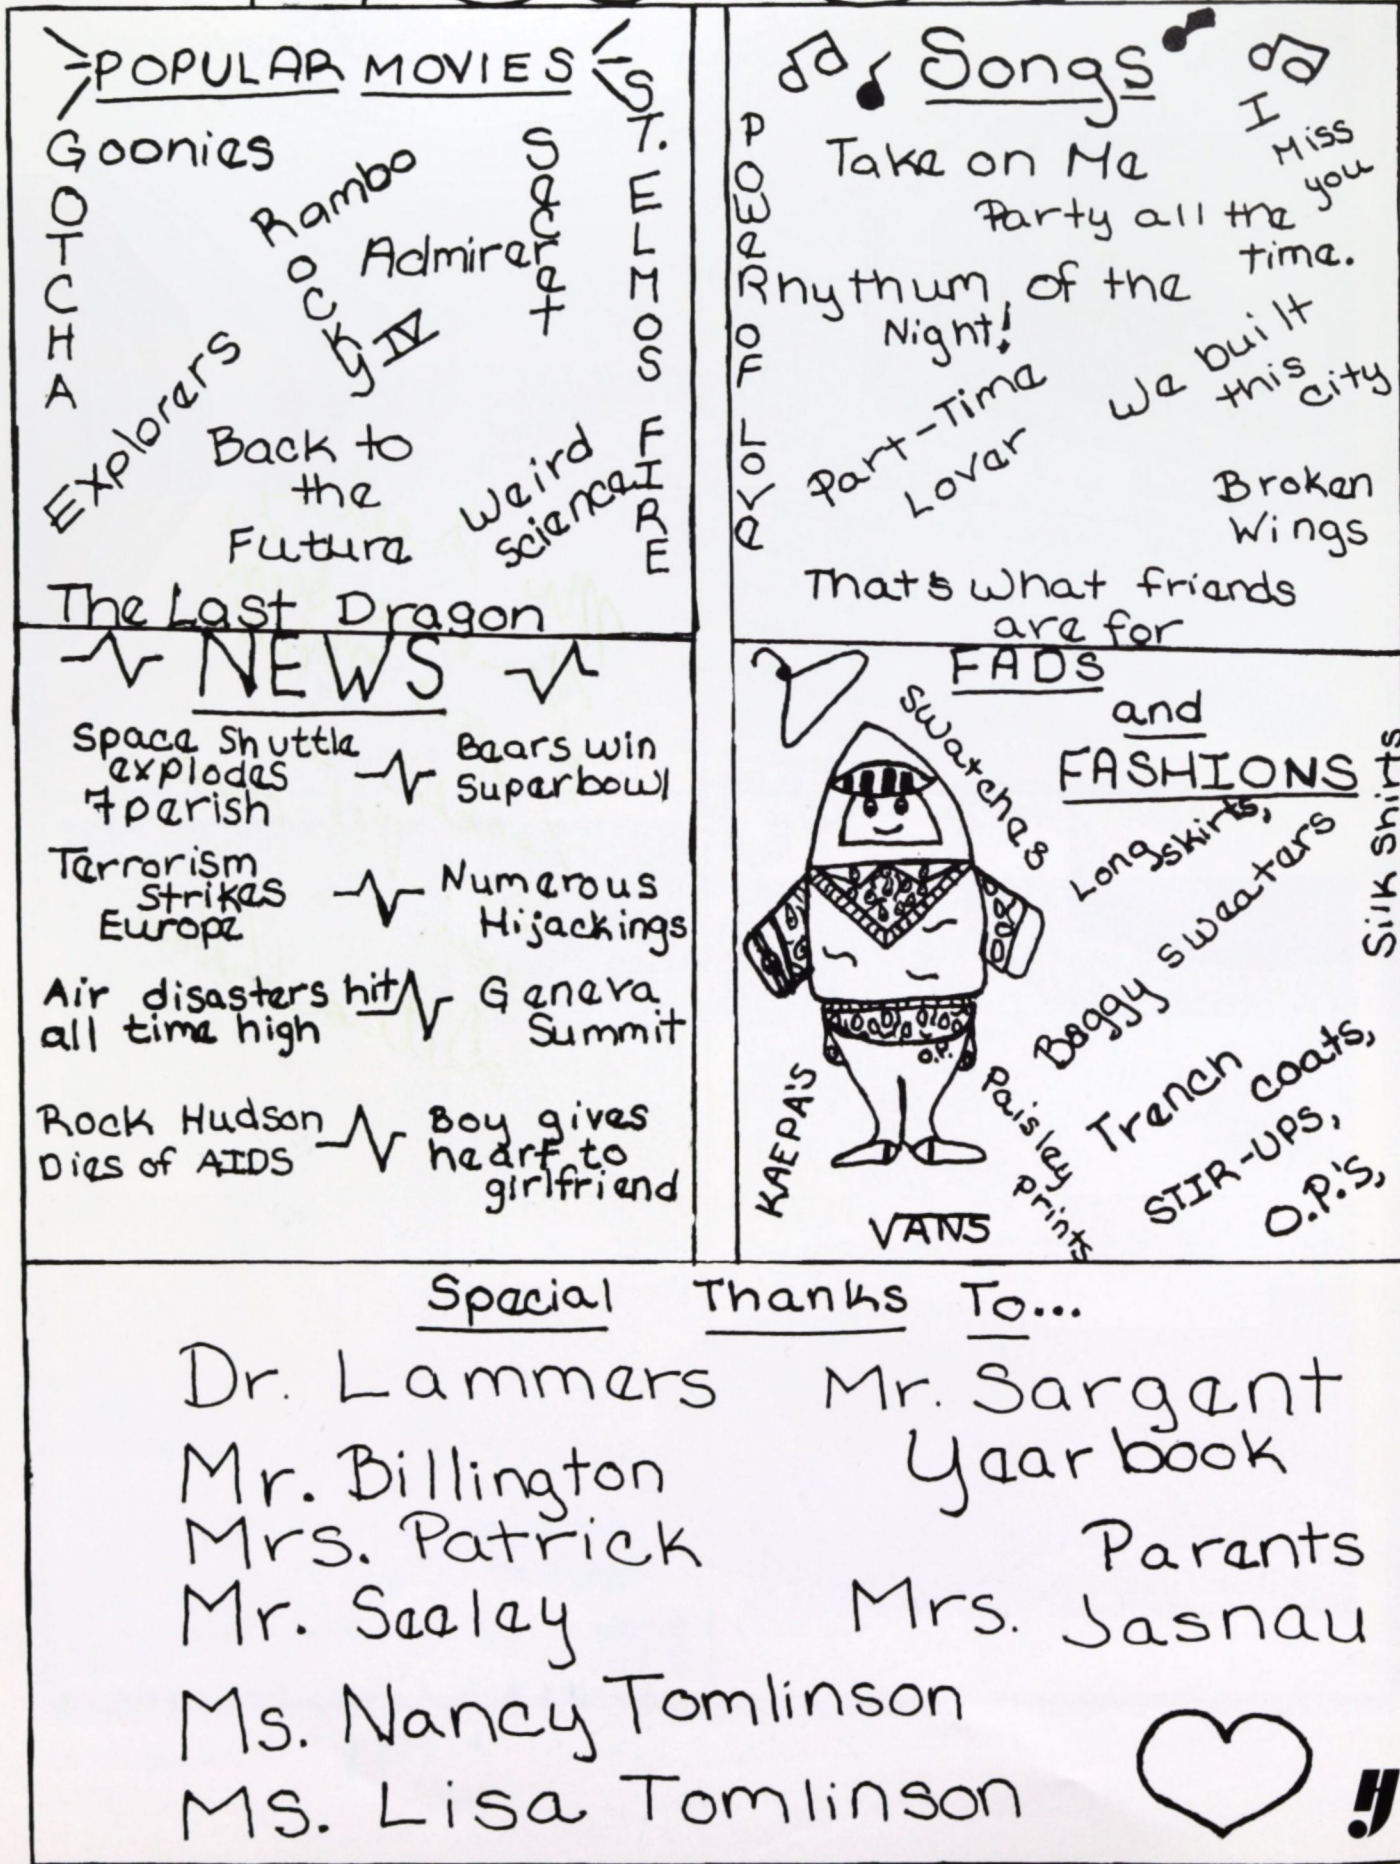 POPULAR MOVIES
Goonies
GOTCHA
Rambo
Rocky IV
Secret
Admirer
ST. ELMOS FIRE
Explorers
Back to
the
Future
Weird
Science
The Last Dragon
Songs
POWER OF LOVE
Take on Me
I
Miss
you
Party all the
time.
Rhythum of the
Night!
Part-Time
Lover
We built
this
city
Broken
Wings
That's what friends
are for
NEWS
Space Shuttle
explodes
7 perish
Bears win
Superbowl
Terrorism
Strikes
Europe
Numerous
Hijackings
Air disasters hit
all time high
Geneva
Summit
Rock Hudson
Dies of AIDS
Boy gives
heart to
girlfriend
FADS
and
FASHIONS
Swatches
Long skirts,
Baggy sweaters
Silk Shirts
Trench
coats,
STIR-UPS,
O.P.'S,
Paisley
Prints
O.P.
KAEPA'S
VANS
Special Thanks To...
Dr. Lammers
Mr. Billington
Mrs. Patrick
Mr. Seeley
Ms. Nancy Tomlinson
Ms. Lisa Tomlinson
Mr. Sargent
Yearbook
Parents
Mrs. Jasnau
HJ